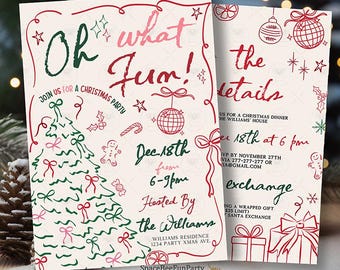 Oh what
Fun!
JOIN US FOR A CHRISTMAS PARTY
Dec 18th
from
6-9pm
Hosted By
the Williamss
WILLIAMS RESIDENCE
1234 PARTY XMAS AVE
the
details
US FOR A CHRISTMAS DINNER
THE WILLIAMS' HOUSE
18th at 6 pm
BY NOVEMBER 27TH
VIA 277-277-277 OR
exchange
RING A WRAPPED GIFT
SANTA EXCHANGE
SpaceBeeFunParty